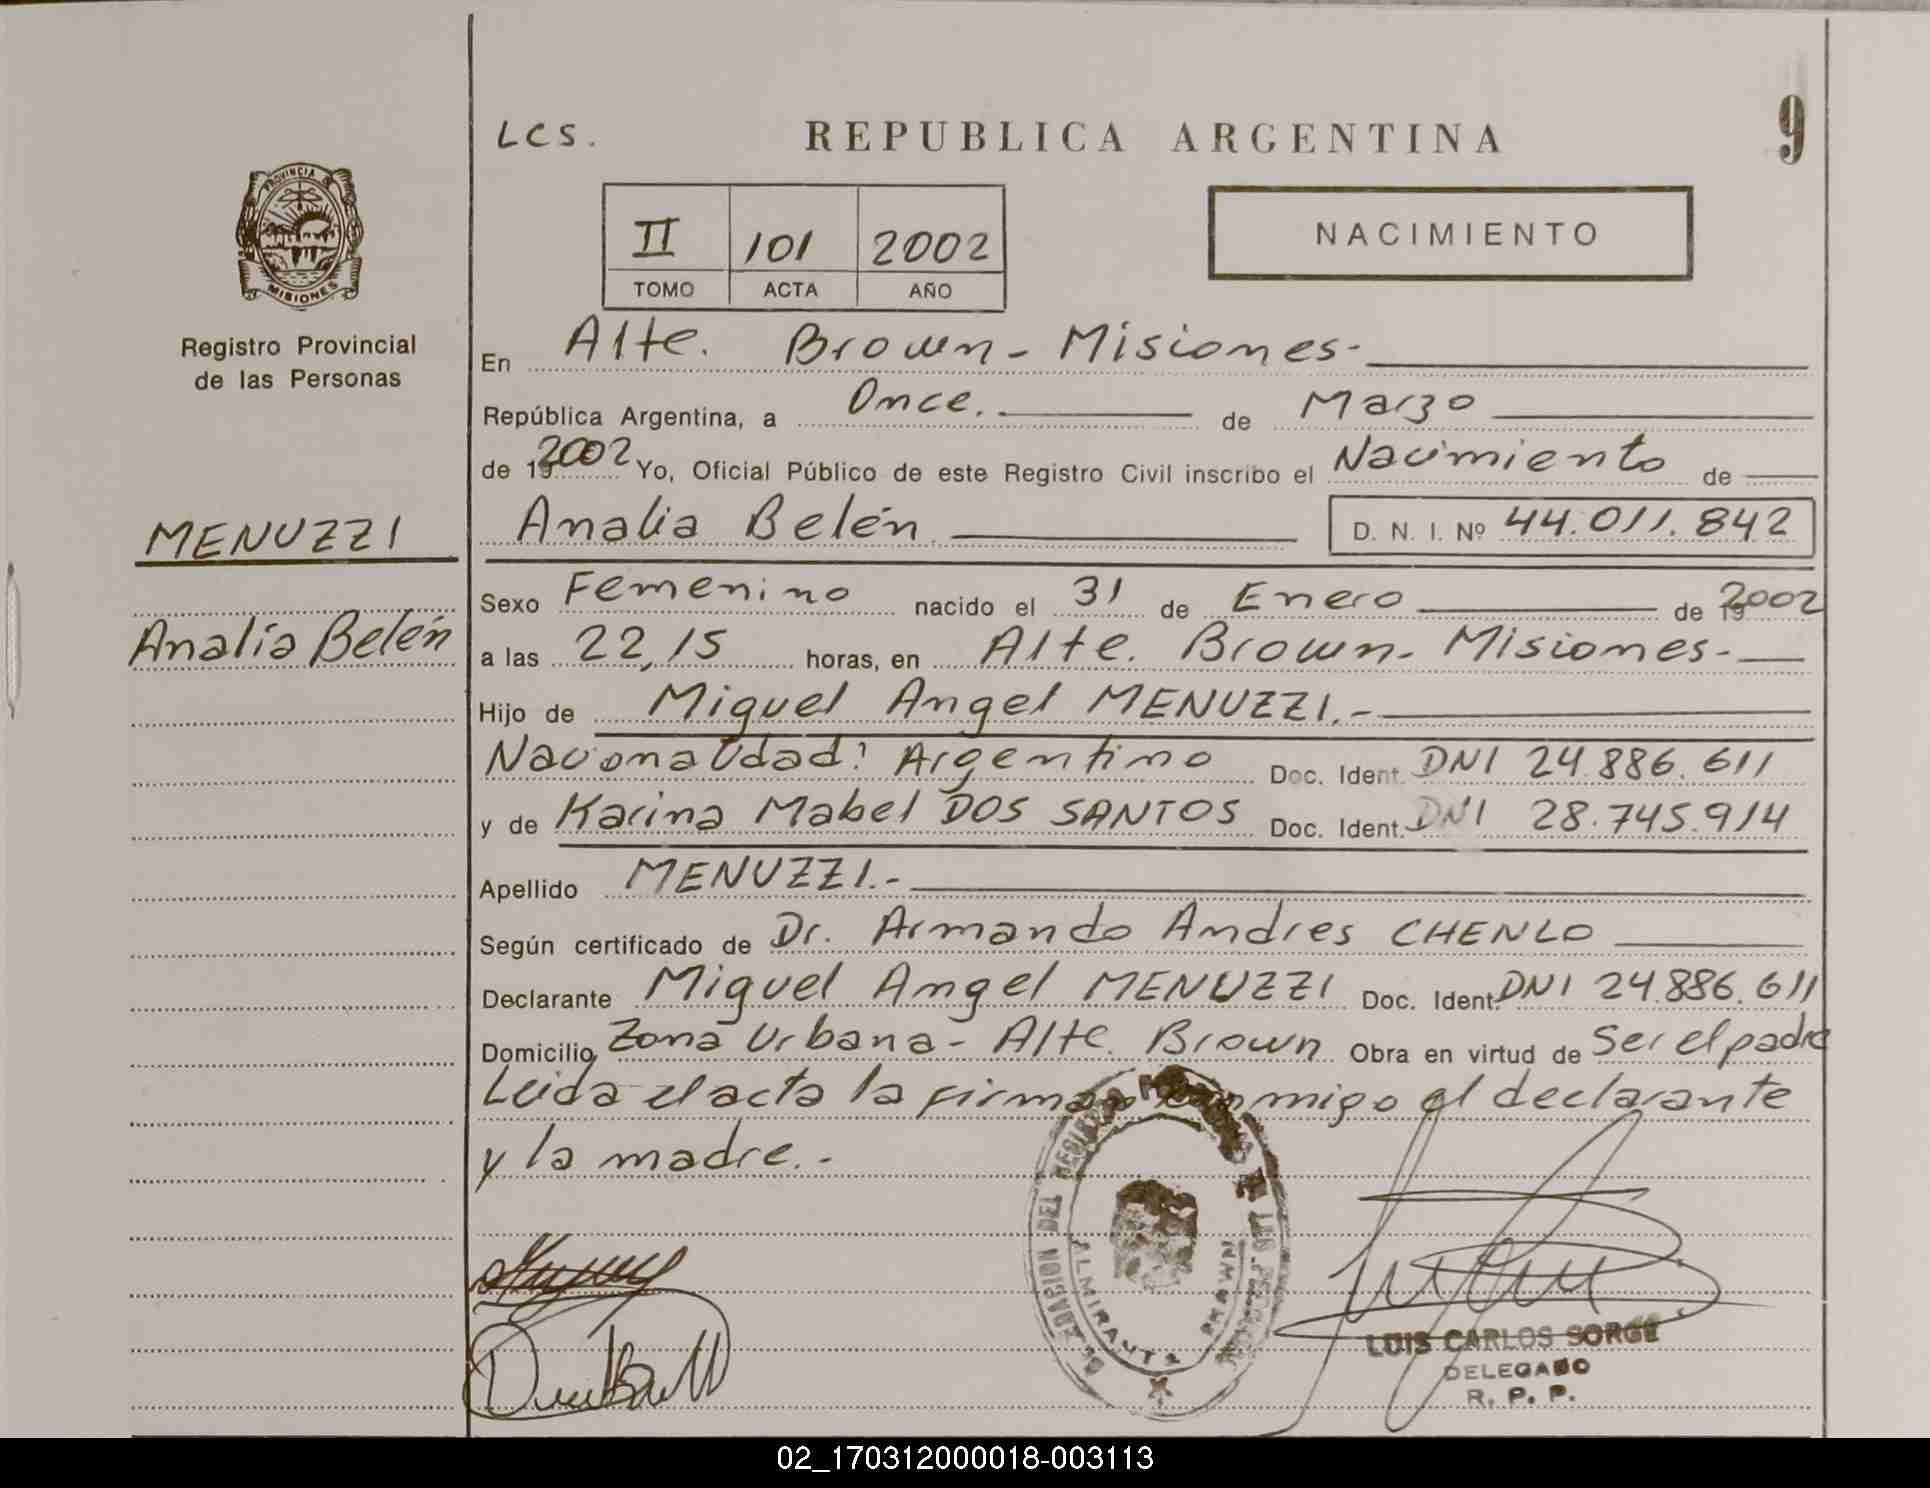 LCS.
REPUBLICA ARGENTINA
9
PROVINCIA DE
MISIONES
Registro Provincial
de las Personas
II 101 2002
TOMO ACTA AÑO
NACIMIENTO
En Alte. Brown - Misiones.-
República Argentina, a Once. de Marzo
de 19 2002 Yo, Oficial Público de este Registro Civil inscribo el Nacimiento de
MENUZZI
Analia Belén D. N. I. Nº 44.011.842
Analía Belén
Sexo Femenino nacido el 31 de Enero de 19 2002
a las 22,15 horas, en Alte. Brown - Misiones.-
Hijo de Miguel Angel MENUZZI.-
Nacionalidad: Argentino Doc. Ident. DNI 24.886.611
y de Karina Mabel DOS SANTOS Doc. Ident. DNI 28.745.914
Apellido MENUZZI.-
Según certificado de Dr. Armando Andres CHENLO
Declarante Miguel Angel MENUZZI Doc. Ident. DNI 24.886.611
Domicilio, Zona Urbana - Alte. Brown Obra en virtud de Ser el padre
Leida el acta la firman conmigo el declarante
y la madre.-
DEL
ALMIRANTE BROWN
LUIS CARLOS SORGE
DELEGADO
R. P. P.
02_170312000018-003113